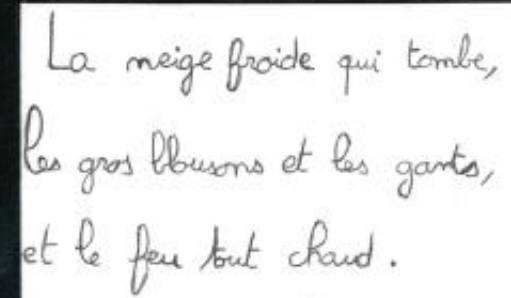 La neige froide qui tombe,
les gros blousons et les gants,
et le feu tout chaud.